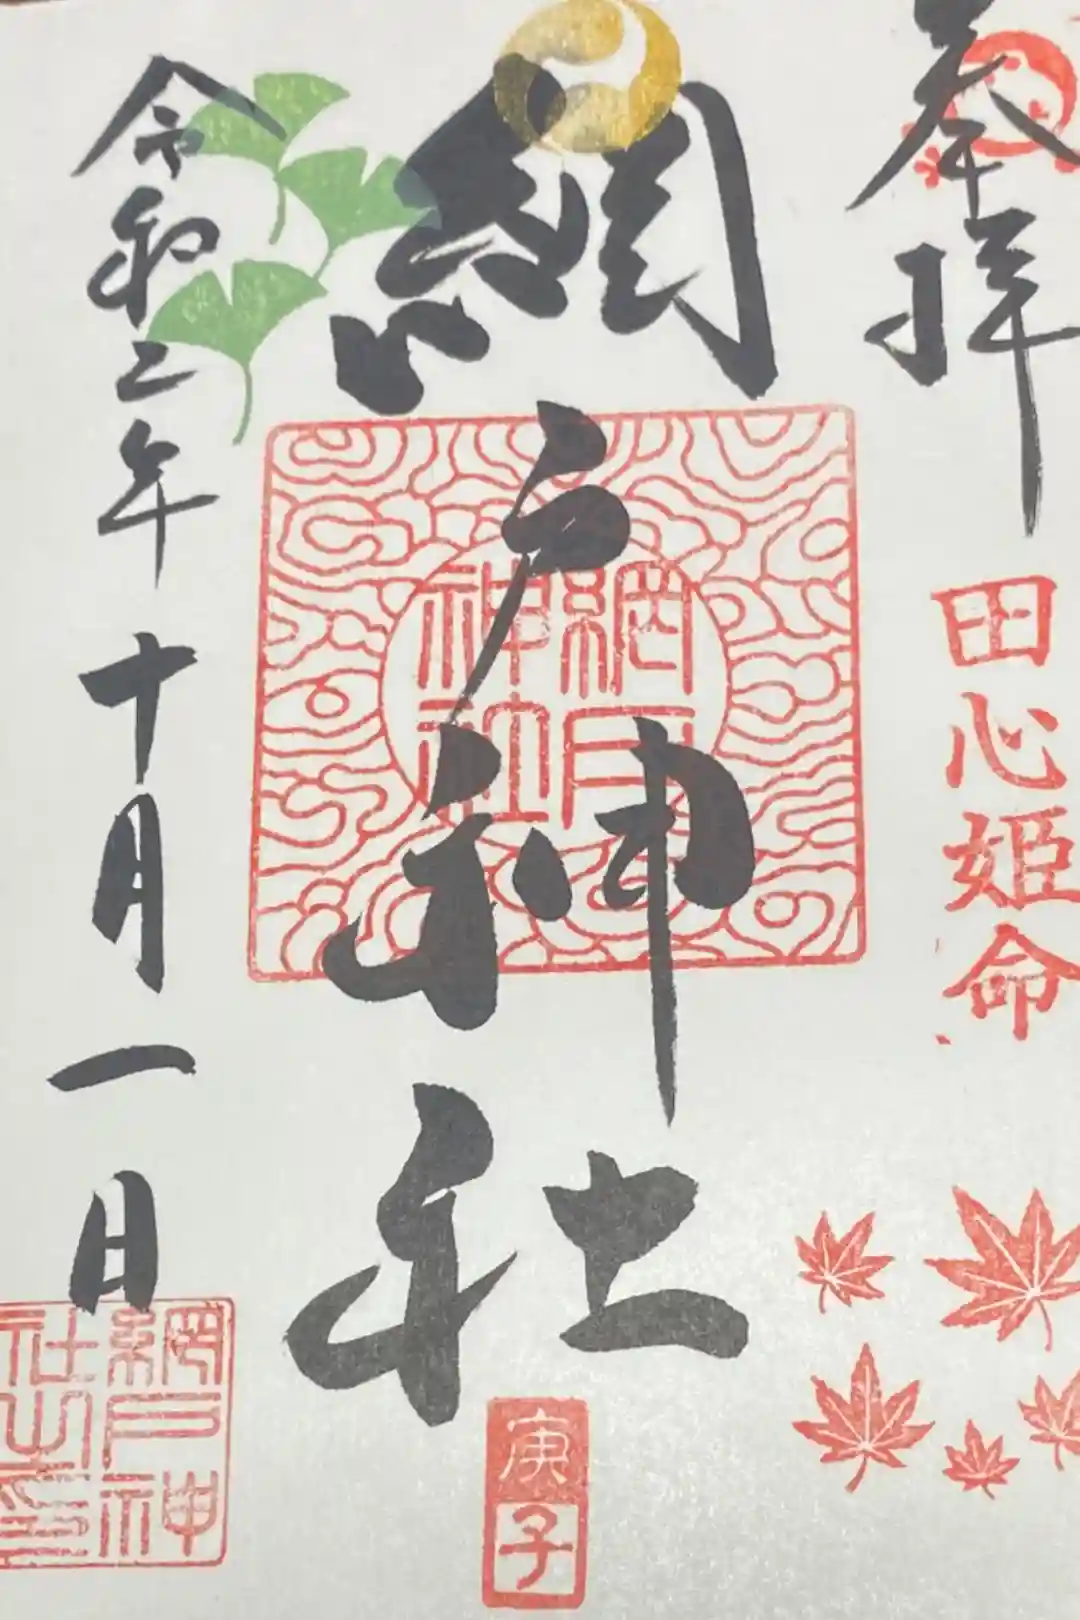 奉拝
田心姫命
網戸神社
網戸
神社
庚子
令和二年十月一日
網戸神
社之印